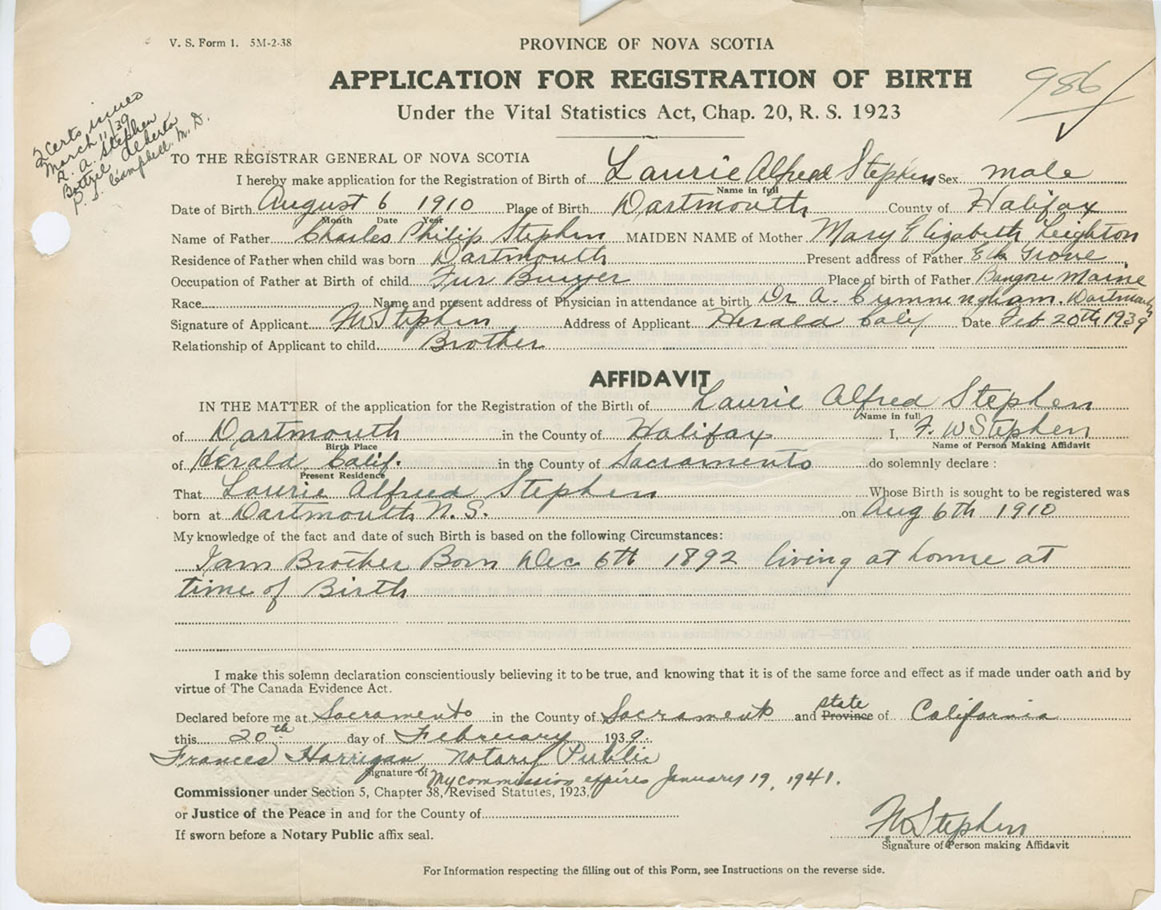 V. S. Form 1. 5M-2-38
PROVINCE OF NOVA SCOTIA
APPLICATION FOR REGISTRATION OF BIRTH
Under the Vital Statistics Act, Chap. 20, R. S. 1923
986
2 Certs issued
March 11/39
L. A. Stephen
Bottrel Alberta
Campbell M. D.
TO THE REGISTRAR GENERAL OF NOVA SCOTIA
I hereby make application for the Registration of Birth of Laurie Alfred Stephen Sex male
Name in full
Date of Birth August 6 1910 Place of Birth Dartmouth County of Halifax
Month Date Year
Name of Father Charles Philip Stephen MAIDEN NAME of Mother Mary Elizabeth Leighton
Residence of Father when child was born Dartmouth Present address of Father Elk Grove
Occupation of Father at Birth of child Fur Buyer Place of birth of Father Bangor Maine
Race Name and present address of Physician in attendance at birth Dr A. Cunningham. Dartmouth
Signature of Applicant FWStephen Address of Applicant Herald Calif Date Feb 20th 1939
Relationship of Applicant to child Brother
AFFIDAVIT
IN THE MATTER of the application for the Registration of the Birth of Laurie Alfred Stephen
Name in full
of Dartmouth in the County of Halifax I, F. W Stephen
Birth Place Name of Person Making Affidavit
of Herald Calif. in the County of Sacramento do solemnly declare :
Present Residence
That Laurie Alfred Stephen Whose Birth is sought to be registered was
born at Dartmouth N. S. on Aug 6th 1910
My knowledge of the fact and date of such Birth is based on the following Circumstances:
I am Brother Born Dec 6th 1892 living at home at
time of Birth
I make this solemn declaration conscientiously believing it to be true, and knowing that it is of the same force and effect as if made under oath and by
virtue of The Canada Evidence Act.
Declared before me at Sacramento in the County of Sacramento and state Province of California
this 20th day of February 1939.
Frances Harrigan Notary Public
Signature of My commission expires January 19, 1941.
Commissioner under Section 5, Chapter 38, Revised Statutes, 1923,
or Justice of the Peace in and for the County of
If sworn before a Notary Public affix seal.
FWStephen
Signature of Person making Affidavit
For Information respecting the filling out of this Form, see Instructions on the reverse side.